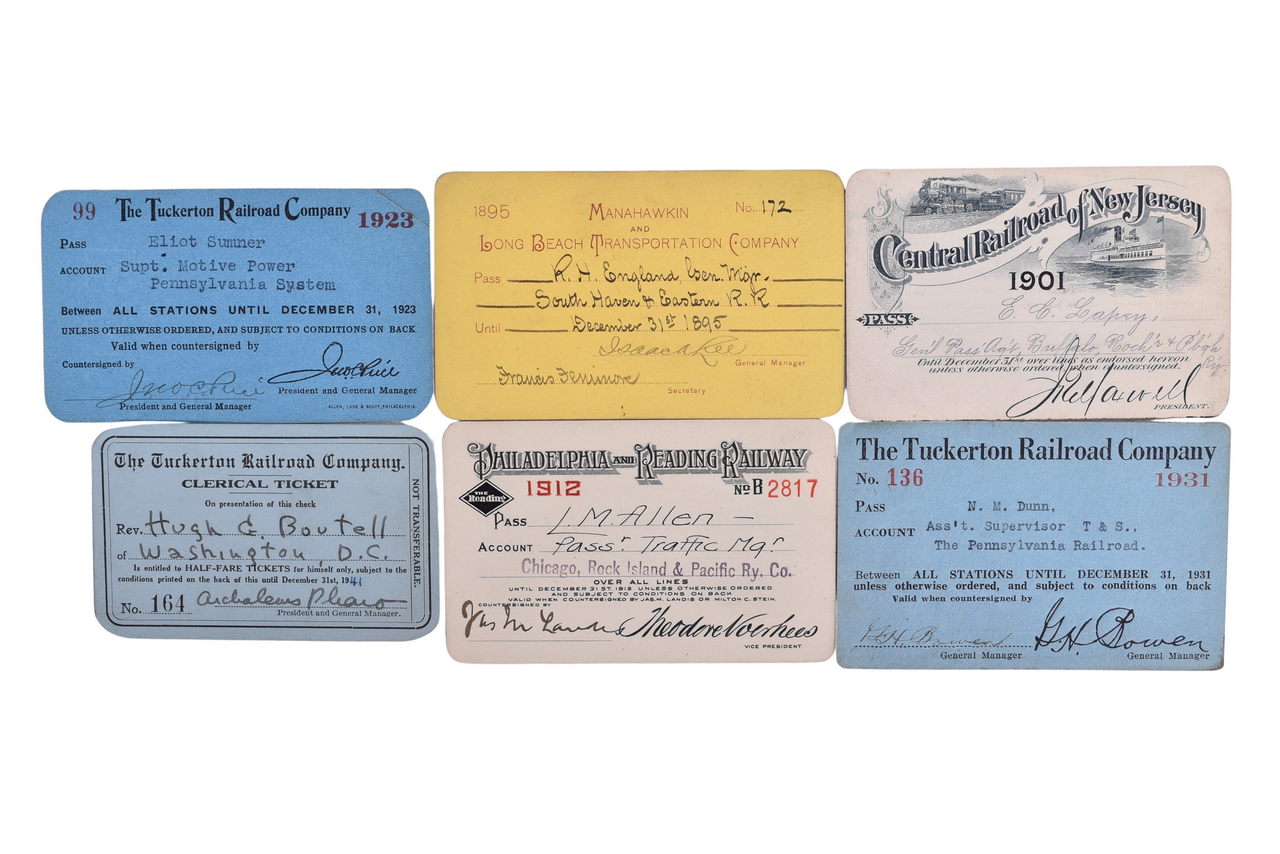 99 The Tuckerton Railroad Company 1923
Pass Eliot Sumner
account Supt. Motive Power
Pennsylvania System
Between ALL STATIONS UNTIL DECEMBER 31, 1923
UNLESS OTHERWISE ORDERED, AND SUBJECT TO CONDITIONS ON BACK
Valid when countersigned by
Countersigned by
Jno C Price Jno. C Price
President and General Manager
President and General Manager
ALLEN, LANE & SCOTT, PHILADELPHIA.
1895 MANAHAWKIN No. 172
AND
LONG BEACH TRANSPORTATION COMPANY
Pass R. H. England, Gen. Mgr.
South Haven & Eastern R. R.
Until December 31st 1895
Isaac Lee
General Manager
Francis Fenimore
Secretary
Central Railroad of New Jersey
1901
PASS E. C. Lapey,
Gen'l Pass Ag't Buffalo Roch'r & P'b'gh Ry.
Until December 31st over lines as endorsed hereon
unless otherwise ordered, when countersigned.
J R Maxwell
PRESIDENT.
The Tuckerton Railroad Company.
CLERICAL TICKET
On presentation of this check
Rev. Hugh G. Boutell
of Washington, D.C.
Is entitled to HALF-FARE TICKETS for himself only, subject to the
conditions printed on the back of this until December 31st, 1941
No. 164 Archelaus Pharo
President and General Manager.
NOT TRANSFERABLE.
PHILADELPHIA AND READING RAILWAY
THE Reading
1912 No B 2817
PASS J. M. Allen —
ACCOUNT Pass'r Traffic Mg'r
Chicago, Rock Island & Pacific Ry. Co.
OVER ALL LINES
UNTIL DECEMBER 31ST 1912 UNLESS OTHERWISE ORDERED
AND SUBJECT TO CONDITIONS ON BACK
VALID WHEN COUNTERSIGNED BY JAS. M. LANDIS OR MILTON C. STEIN.
COUNTERSIGNED BY
Jas M Landis Theodore Voorhees
VICE PRESIDENT
The Tuckerton Railroad Company
No. 136 1931
Pass N. M. Dunn,
account Ass't. Supervisor T & S.,
The Pennsylvania Railroad.
Between ALL STATIONS UNTIL DECEMBER 31, 1931
unless otherwise ordered, and subject to conditions on back
Valid when countersigned by
G H Bowen G. H. Bowen
General Manager
General Manager